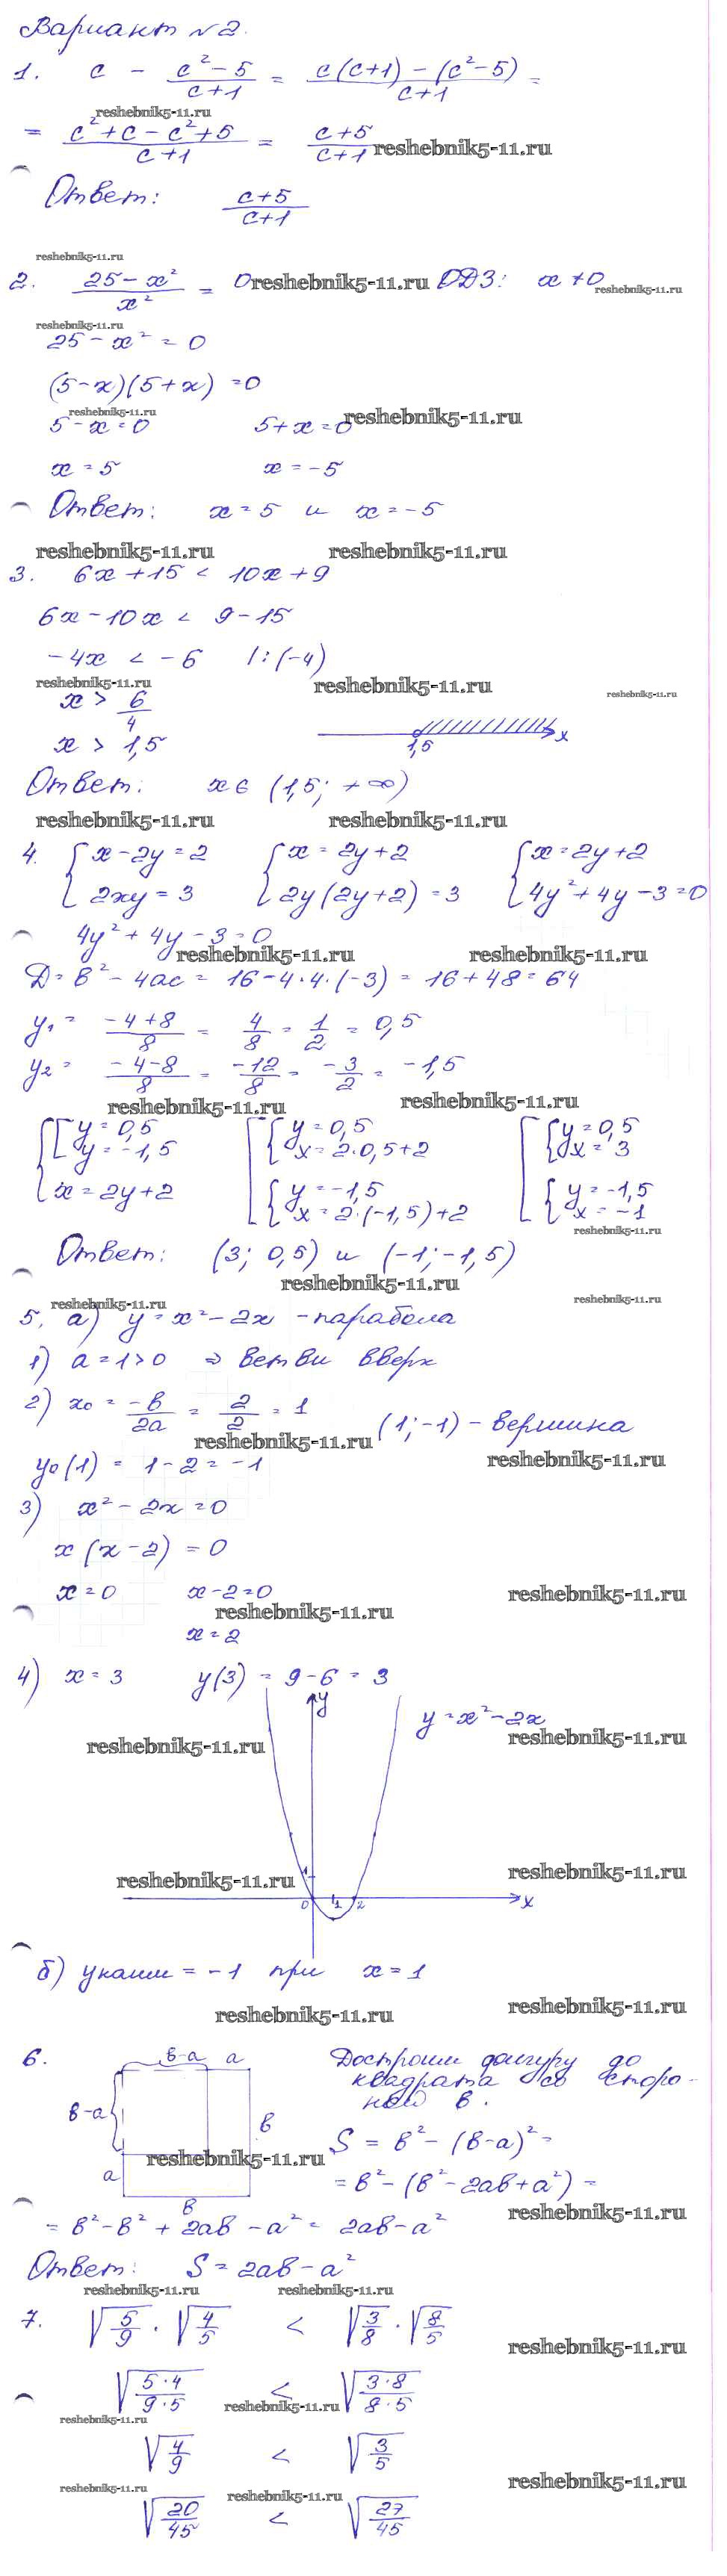 Вариант №2.
1. c - (c² - 5)/(c+1) = (c(c+1) - (c² - 5))/(c+1) =
reshebnik5-11.ru
= (c² + c - c² + 5)/(c+1) = (c+5)/(c+1) reshebnik5-11.ru
Ответ: (c+5)/(c+1)
reshebnik5-11.ru
2. (25 - x²)/x² = 0 reshebnik5-11.ru ОДЗ: x ≠ 0
reshebnik5-11.ru
reshebnik5-11.ru
25 - x² = 0
(5-x)(5+x) = 0
reshebnik5-11.ru reshebnik5-11.ru
5 - x = 0 5 + x = 0
x = 5 x = -5
Ответ: x = 5 и x = -5
reshebnik5-11.ru reshebnik5-11.ru
3. 6x + 15 < 10x + 9
6x - 10x < 9 - 15
-4x < -6 |:(-4)
reshebnik5-11.ru reshebnik5-11.ru reshebnik5-11.ru
x > 6/4
x > 1,5 1,5 x
Ответ: x ∈ (1,5; +∞)
reshebnik5-11.ru reshebnik5-11.ru
4. { x - 2y = 2 { x = 2y + 2 { x = 2y + 2
2xy = 3 2y(2y+2) = 3 4y² + 4y - 3 = 0
4y² + 4y - 3 = 0
reshebnik5-11.ru reshebnik5-11.ru
Д = в² - 4ac = 16 - 4·4·(-3) = 16 + 48 = 64
y₁ = (-4+8)/8 = 4/8 = 1/2 = 0,5
y₂ = (-4-8)/8 = -12/8 = -3/2 = -1,5
reshebnik5-11.ru reshebnik5-11.ru
{ [ y = 0,5 [ { y = 0,5 [ { y = 0,5
y = -1,5 x = 2·0,5+2 x = 3
x = 2y + 2 { y = -1,5 { y = -1,5
x = 2·(-1,5)+2 x = -1
reshebnik5-11.ru
Ответ: (3; 0,5) и (-1; -1,5)
reshebnik5-11.ru
reshebnik5-11.ru reshebnik5-11.ru
5. а) y = x² - 2x - парабола
1) a = 1 > 0 ⇒ ветви вверх
2) x₀ = -в/2a = 2/2 = 1 (1; -1) - вершина
reshebnik5-11.ru reshebnik5-11.ru
y₀(1) = 1 - 2 = -1
3) x² - 2x = 0
x(x-2) = 0
x = 0 x - 2 = 0 reshebnik5-11.ru
reshebnik5-11.ru
x = 2
4) x = 3 y(3) = 9 - 6 = 3
y
y = x² - 2x
reshebnik5-11.ru reshebnik5-11.ru
reshebnik5-11.ru 1 reshebnik5-11.ru
0 1 2 x
б) yнаим = -1 при x = 1
reshebnik5-11.ru reshebnik5-11.ru
6. в-a a Достроим фигуру до
квадрата со сторо-
в-a в ной в.
reshebnik5-11.ru S = в² - (в-a)² =
a = в² - (в² - 2aв + a²) =
в reshebnik5-11.ru
= в² - в² + 2aв - a² = 2aв - a²
Ответ: S = 2aв - a²
reshebnik5-11.ru reshebnik5-11.ru
7. √(5/9) · √(4/5) < √(3/8) · √(8/5)
reshebnik5-11.ru
√((5·4)/(9·5)) < √((3·8)/(8·5))
reshebnik5-11.ru
reshebnik5-11.ru
√(4/9) < √(3/5)
reshebnik5-11.ru
reshebnik5-11.ru reshebnik5-11.ru
√(20/45) < √(27/45)